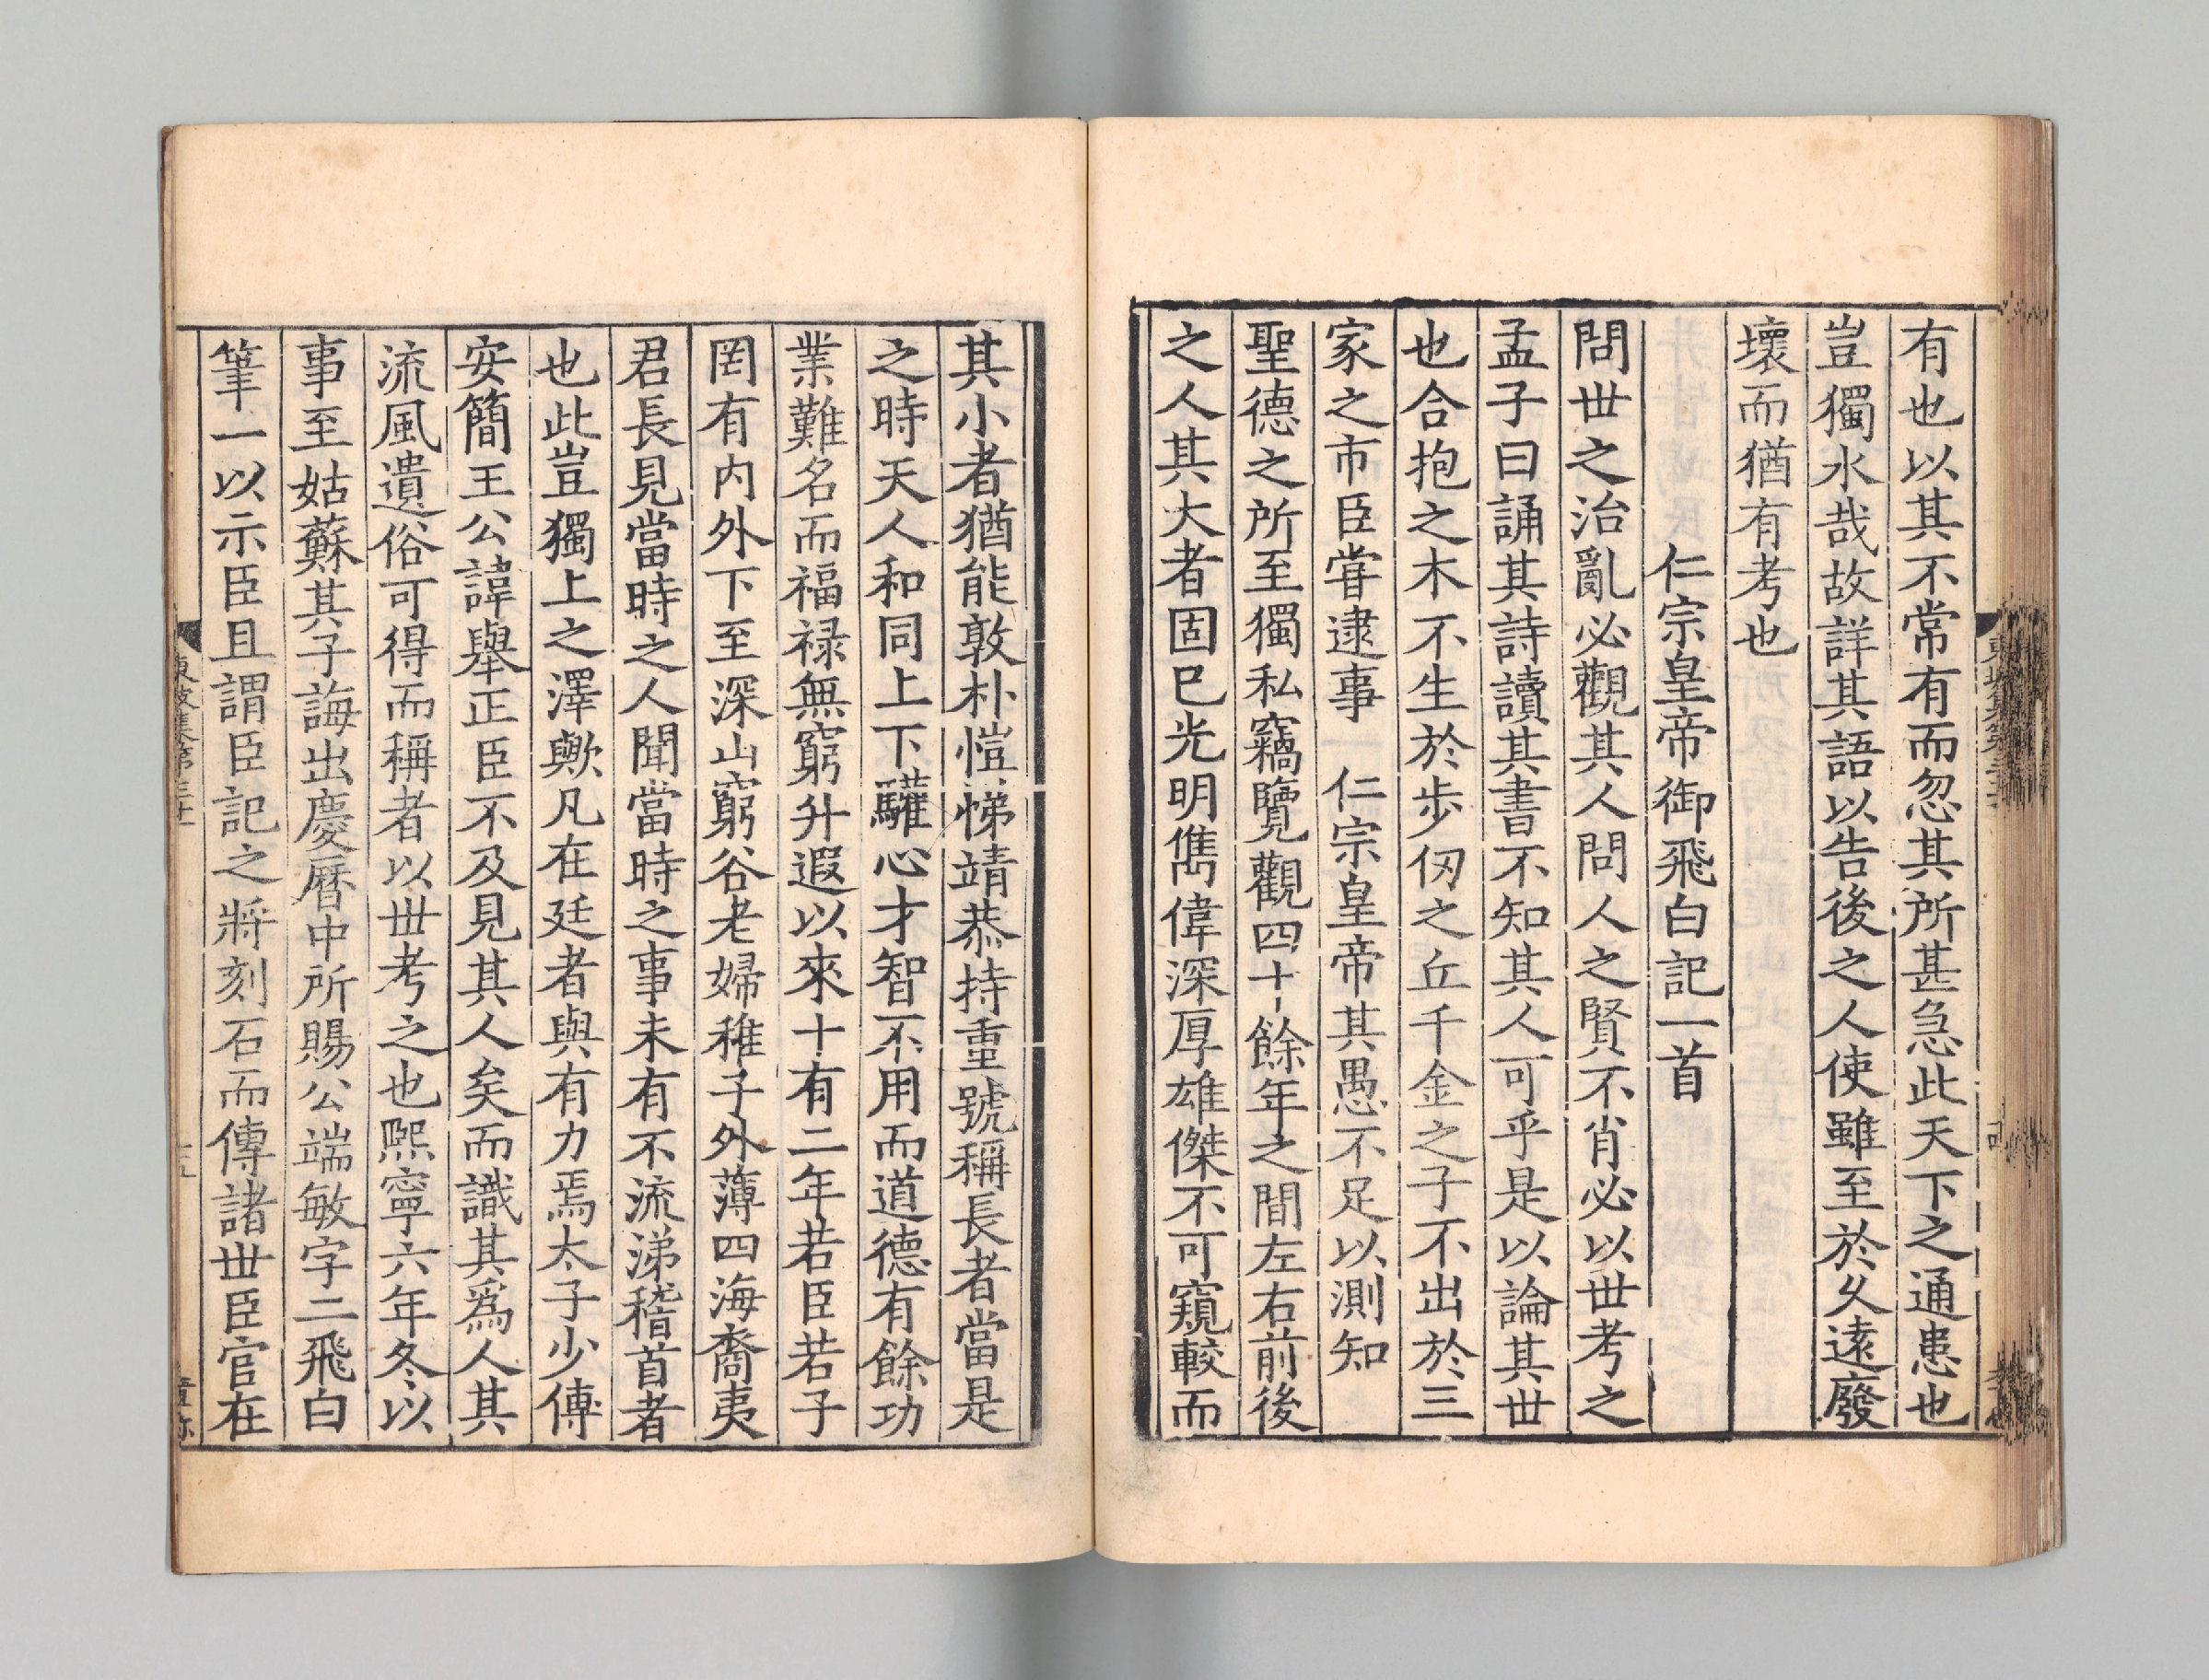 有也以其不常有而忽其所甚急此天下之通患也
豈獨水哉故詳其語以告後之人使雖至於乆逺廢
壞而猶有考也
仁宗皇帝御飛白記一首
問世之治亂必觀其人問人之賢不肖必以世考之
孟子曰誦其詩讀其書不知其人可乎是以論其世
也合抱之木不生於步仭之丘千金之子不出於三
家之市臣甞逮事　仁宗皇帝其愚不足以測知
聖德之所至獨私竊覽觀四十餘年之間左右前後
之人其大者固已光明儁偉深厚雄傑不可窺較而
其小者猶能敦朴愷悌靖恭持重號稱長者當是
之時天人和同上下驩心才智不用而道德有餘功
業難名而福禄無窮升遐以來十有二年若臣若子
罔有内外下至深山窮谷老婦稚子外薄四海裔夷
君長見當時之人聞當時之事未有不流涕稽首者
也此豈獨上之澤歟凡在廷者與有力焉太子少傅
安簡王公諱舉正臣不及見其人矣而識其爲人其
流風遺俗可得而稱者以世考之也熈寧六年冬以
事至姑蘇其子誨出慶曆中所賜公端敏字二飛白
筆一以示臣且謂臣記之將刻石而傳諸世臣官在
東坡集第三十一
十五